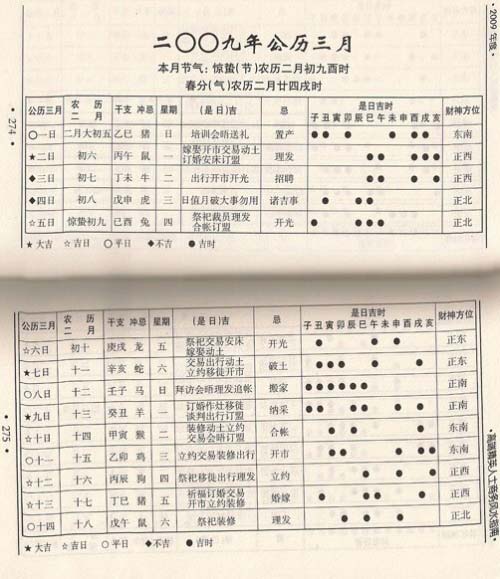 ·2009年度·
二〇〇九年公历三月
本月节气：惊蛰(节)农历二月初九酉时
春分(气)农历二月廿四戌时
·274·
公历三月 农历二月 干支 冲忌 星期 (是日)吉 忌 是日吉时 财神方位
子 丑 寅 卯 辰 巳 午 未 申 酉 戌 亥
○一日 二月大初五 乙巳 猪 日 培训会晤送礼 置产 东南
★二日 初六 丙午 鼠 一 嫁娶开市交易动土 理发 正西
订婚安床订盟
◆三日 初七 丁未 牛 二 出行开市开光 招聘 正西
◆四日 初八 戊申 虎 三 日值月破大事勿用 诸吉事 正北
☆五日 惊蛰初九 己酉 兔 四 祭祀裁员理发 开光 正北
合帐订盟
★大吉 ☆吉日 ○平日 ◆不吉 ●吉时
公历三月 农历二月 干支 冲忌 星期 (是日)吉 忌 是日吉时 财神方位
子 丑 寅 卯 辰 巳 午 未 申 酉 戌 亥
☆六日 初十 庚戌 龙 五 祭祀交易安床 开光 正东
嫁娶动土
★七日 十一 辛亥 蛇 六 交易出行动土 破土 正东
立约移徙开市
○八日 十二 壬子 马 日 拜访会晤理发追帐 搬家 正南
★九日 十三 癸丑 羊 一 订婚作灶移徙 纳采 正南
谈判出行订盟
☆十日 十四 甲寅 猴 二 装修动土立约 合帐 东南
交易会晤订盟
○十一 十五 乙卯 鸡 三 立约交易装修出行 开市 东南
☆十二 十六 丙辰 狗 四 祭祀移徙出行理发 立约 正西
☆十三 十七 丁巳 猪 五 祈福订婚交易 婚嫁 正西
开市立约装修
○十四 十八 戊午 鼠 六 祭祀装修 理发 正北
★大吉 ☆吉日 ○平日 ◆不吉 ●吉时
·275·